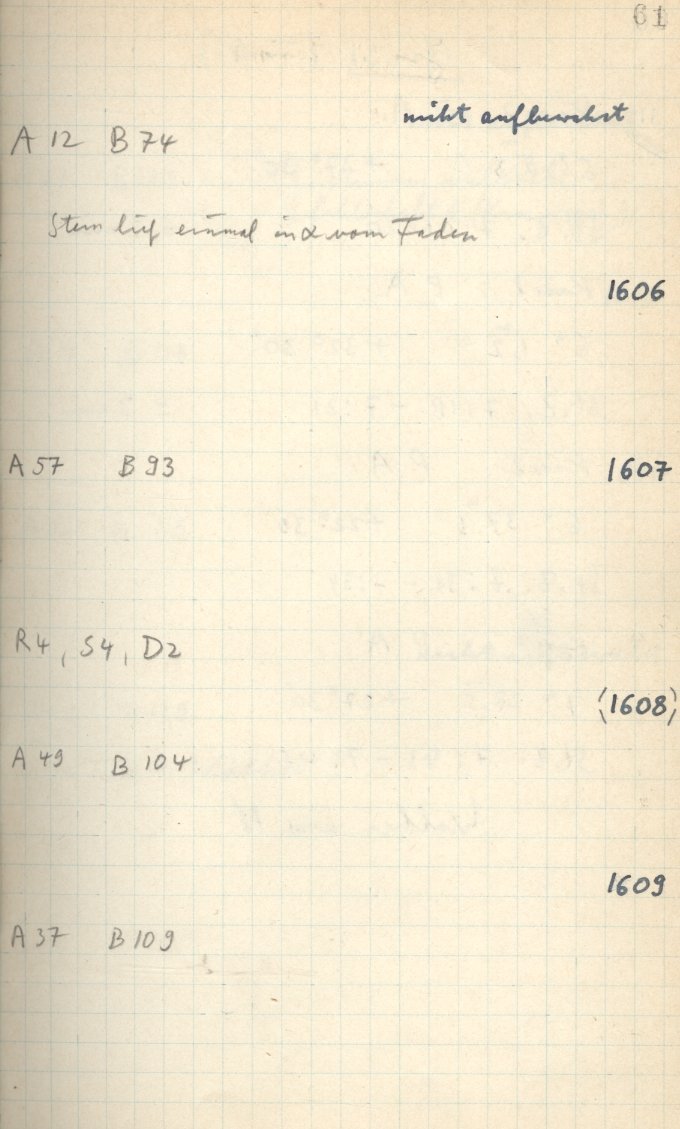 61
nicht aufbewahrt
A 12 B 74
Stern lief einmal in α vom Faden
1606
A 57 B 93
1607
R4, S4, D2
(1608)
A 49 B 104
1609
A 37 B 109